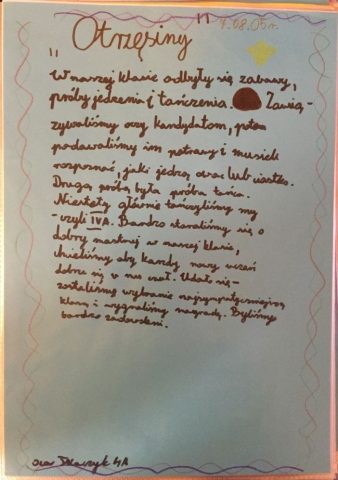 "Otrzęsiny" 7.08.05r.
W naszej klasie odbyły się zabawy,
próby jedzenia i tańczenia. Zawią-
zywaliśmy oczy kandydatom, potem
podawaliśmy im potrawy i musieli
rozpoznać, jaki jedzą owoc lub ciastko.
Drugą próbą była próba tańca.
Niestety głównie tańczyliśmy my
-czyli IVA. Bardzo staraliśmy się o
dobry nastrój w naszej klasie,
chcieliśmy aby każdy nowy uczeń
dobrze się w nas czuł. Udało się-
zostaliśmy wybrani najsympatyczniejszą
klasą i wygraliśmy nagrodę. Byliśmy
bardzo zadowoleni.
4A